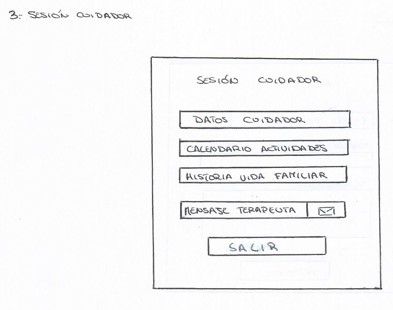 3.- SESIÓN CUIDADOR
SESIÓN CUIDADOR
DATOS CUIDADOR
CALENDARIO ACTIVIDADES
HISTORIA VIDA FAMILIAR
MENSAJE TERAPEUTA
SALIR